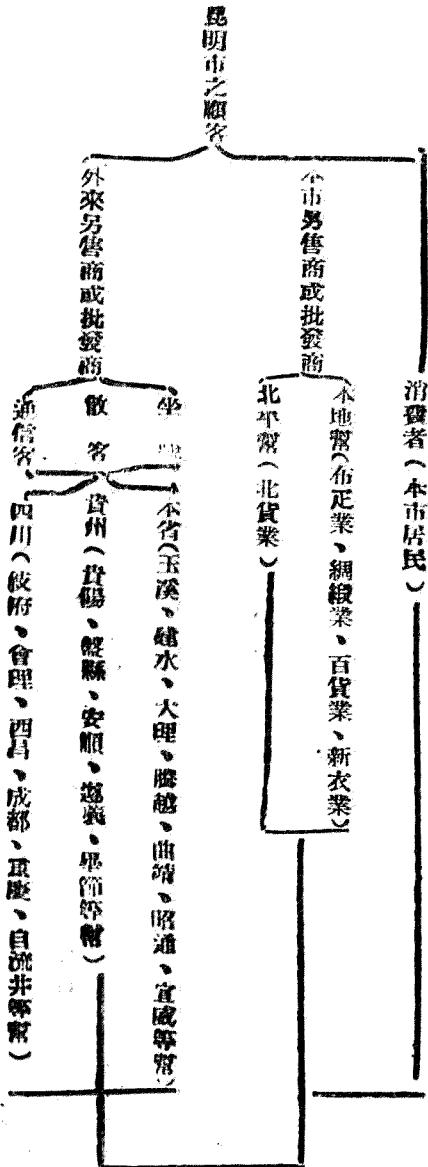 昆明市之顧客
消費者（本市居民）
本市另售商或批發商
本地幫（布疋業、綢緞業、百貨業、新衣業）
北平幫（北貨業）
外來另售商或批發商
坐
散客
通信客
本省（玉溪、建水、大理、騰越、曲靖、昭通、宣威等幫）
貴州（貴陽、盤縣、安順、遵義、畢節等幫）
四川（敘府、會理、西昌、成都、重慶、自流井等幫）